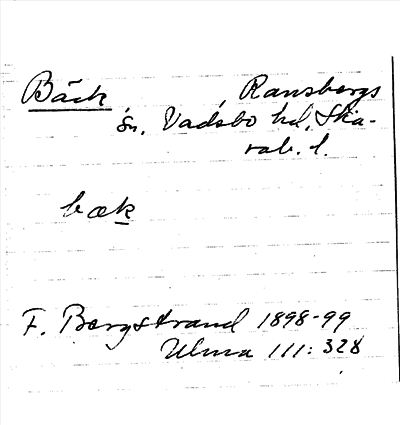 Bäck, Ransbergs
sn. Vadsbo hd, Ska-
rab. l.
bæk
F. Bergstrand 1898-99
Ulma 111:328